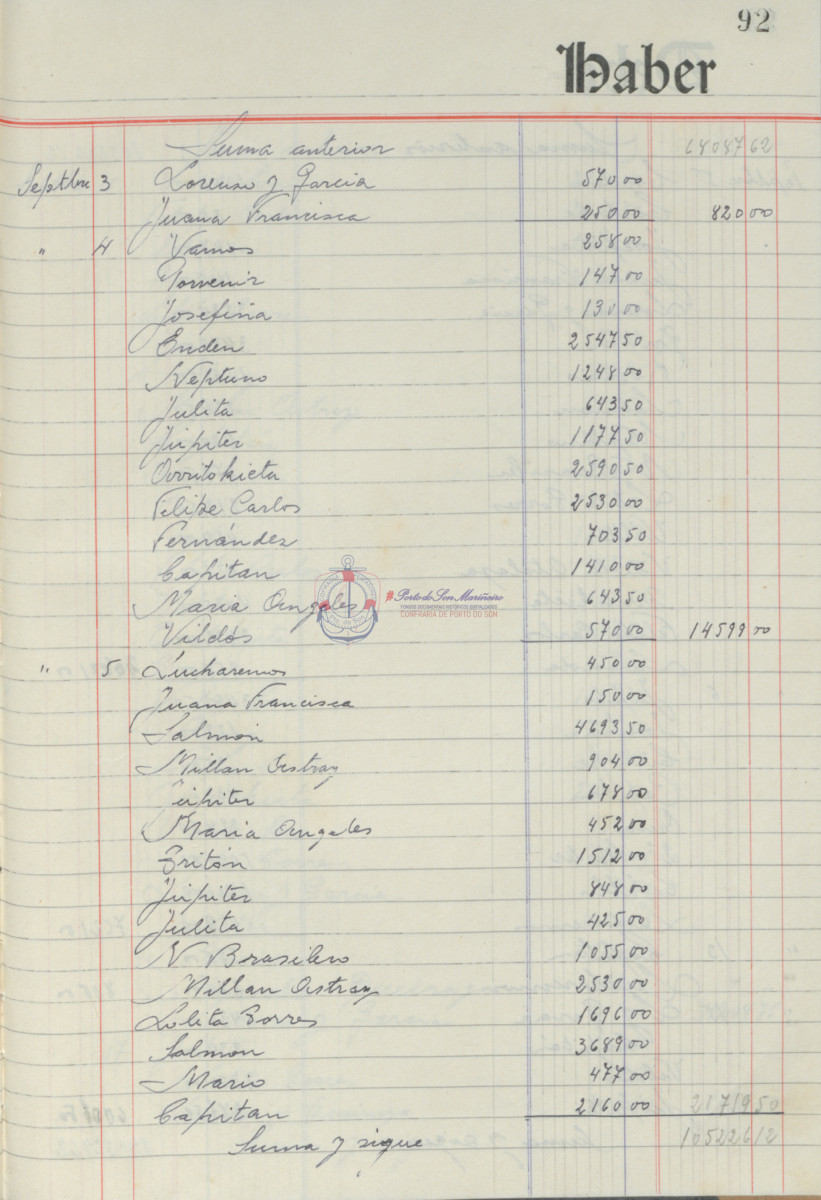 92
Haber
Suma anterior 68087 62
Septbre 3 Lorenzo y Garcia 570 00
Juana Francisca 250 00 820 00
" 4 Vamos 258 00
Porvenir 147 00
Josefina 130 00
Enden 2547 50
Neptuno 1248 00
Julita 643 50
Júpiter 1177 50
Orritokieta 2590 50
Felipe Carlos 2530 00
Fernández 703 50
Capitan 1410 00
Maria Angeles 643 50
#Porto do Son Mariñeiro
FONDOS DOCUMENTAIS HISTÓRICOS DIXITALIZADOS
CONFRARÍA DE PORTO DO SON
Vildós 570 00 14599 00
" 5 Lucharemos 450 00
Juana Francisca 150 00
Salmón 4693 50
Millan Astray 904 00
Júpiter 678 00
Maria Angeles 452 00
Tritón 1512 00
Júpiter 848 00
Julita 425 00
N Brasilero 1055 00
Millan Astray 2530 00
Lolita Torres 1696 00
Salmon 3689 00
Mario 477 00
Capitan 2160 00 21719 50
Suma y sigue 105226 12